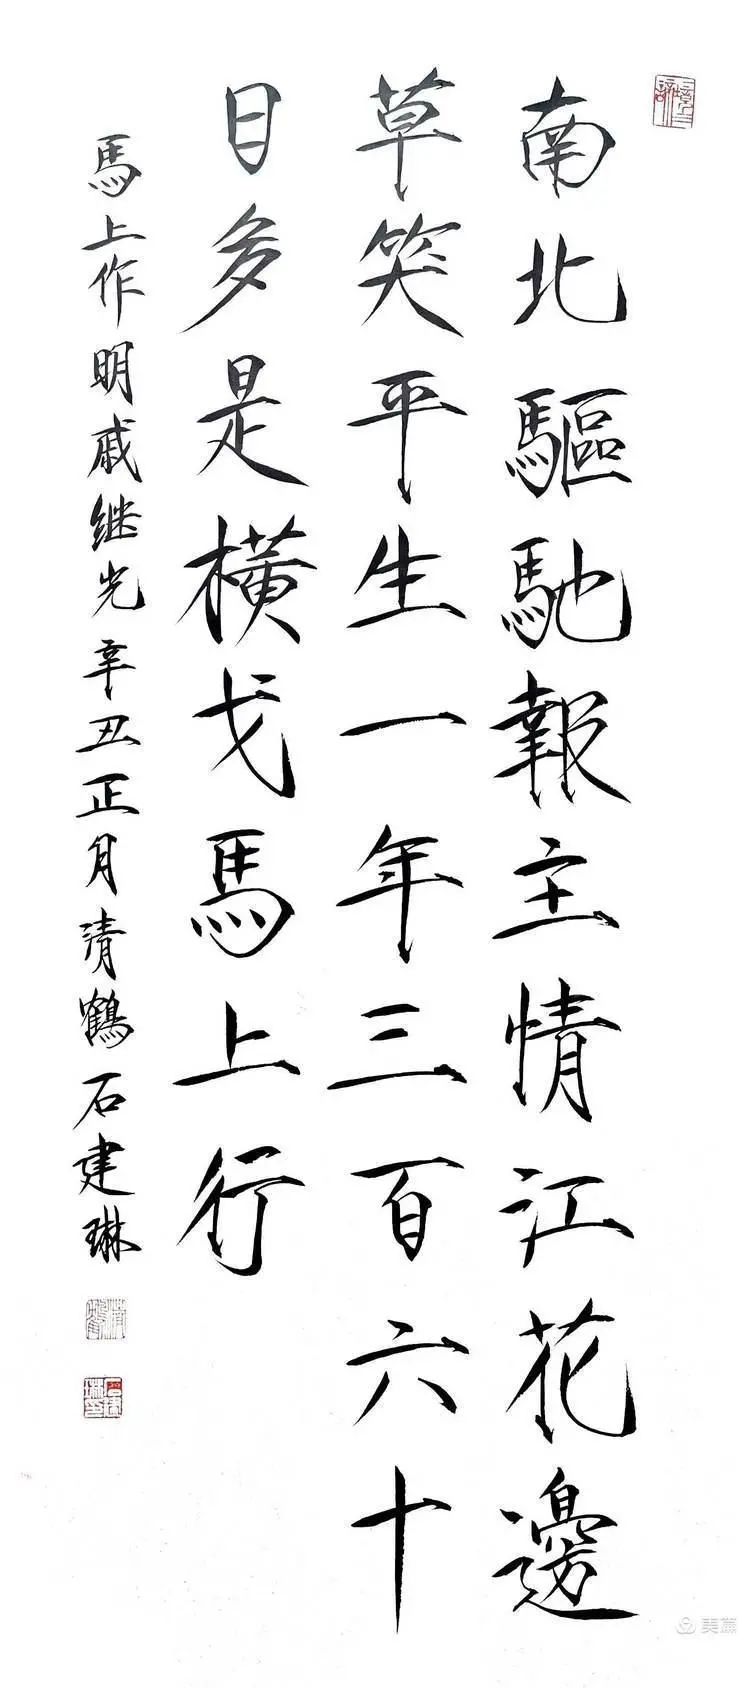 南北驅馳報主情江花邊
草笑平生一年三百六十
日多是橫戈馬上行
馬上作明戚继光辛丑正月清鶴石建琳
美篇